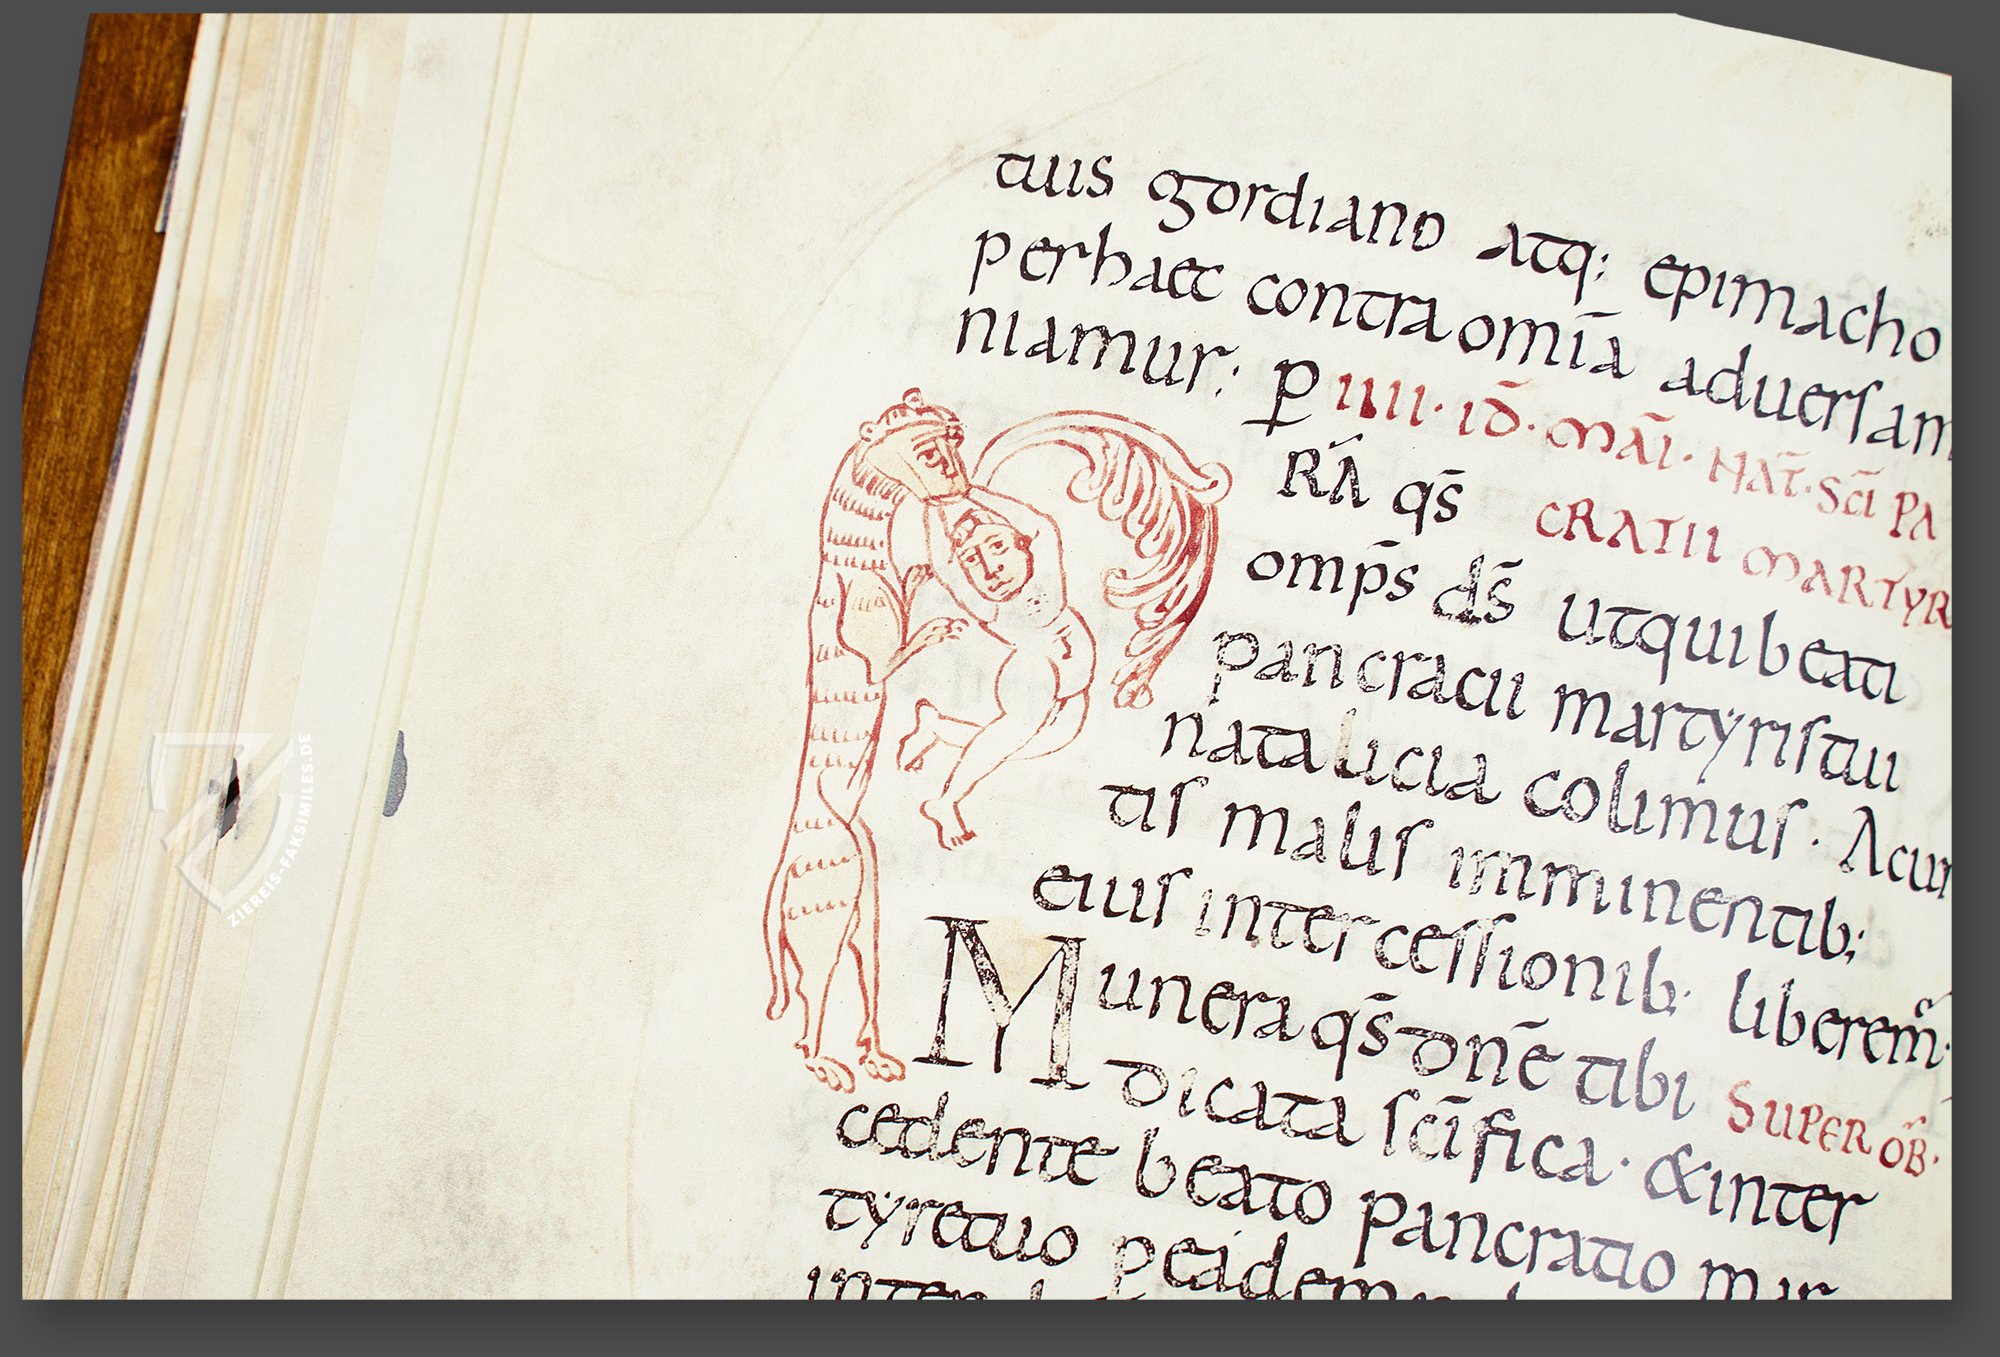 tuis gordiano atq: epimacho
per haec contra omīa aduersam
niamur; P IIII· ID̄· MAĪ· NAT̄· SC̄I PA
RĀ qs̄ CRATII MARTYR
omp̄s ds̄ ut qui beati
pancratii martyris tui
natalicia colimus· A cun
tis malis imminentib;
eius intercessionib· liberem̄·
Munera qs̄ dn̄e tibi SUPER OB̄·
dicata sc̄ifica· & inter
cedente beato pancratio mar
tyre tuo p eadem
ZIEREIS-FAKSIMILES.DE